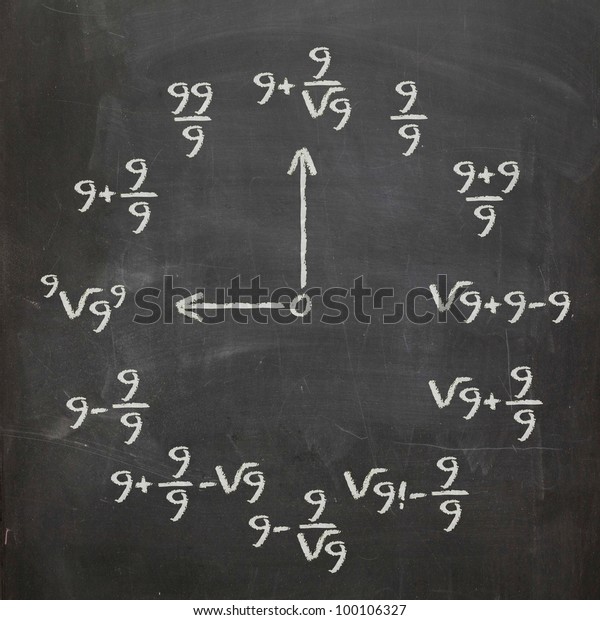 99/9
9+9/√9
9/9
9+9/9
(9+9)/9
⁹√9⁹
√9+9-9
shutterstock
9-9/9
√9+9/9
9+9/9-√9
9-9/√9
√9!-9/9
www.shutterstock.com · 100106327